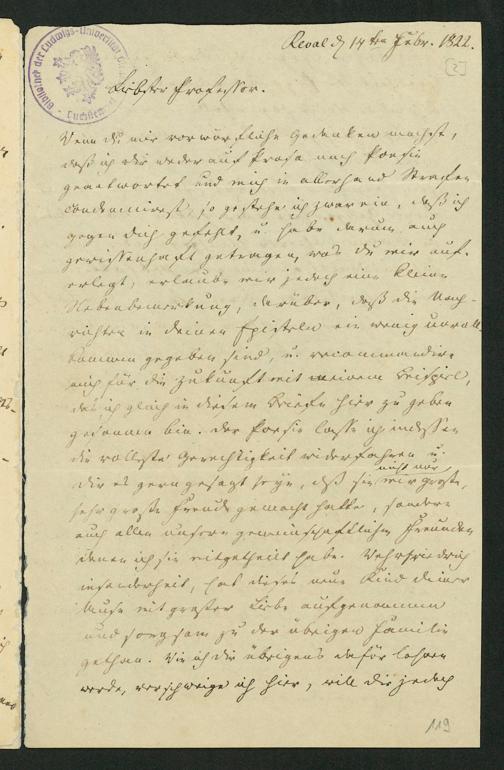 Bibliothek der Ludwigs-Universität
Giessen
Reval d 14ten Febr. 1822.
[2]
Liebster Professor.
Wenn du mir vorwürfliche Gedanken machst,
daß ich dir weder auf Prosa noch Poesie
geantwortet und mich in allerhand Strafen
condemnirest, so gestehe ich zwar ein, daß ich
gegen dich gefehlt, u. habe darum auch
gewissenhaft getragen, was du mir auf-
erlegt, erlaube mir jedoch eine kleine
Nebenbemerkung, darüber, daß die Nach-
richten in deinen Episteln ein wenig unvoll-
kommen gegeben sind, u. recommandire
mich für die Zukunft mit meinem Beispiel,
das ich gleich in diesem Briefe hier zu geben
gesonnen bin. Der Poesie lasse ich indessen
die vollste Gerechtigkeit widerfahren u.
dir es gern gesagt seyn, daß sie nicht nur mir große,
sehr große Freude gemacht hatte, sondern
auch allen unsern gemeinschaftlichen Freunden
denen ich sie mitgetheilt habe.
insonderheit, hat dieses neue Kind deiner
Muse mit großer Liebe aufgenommen
und sorgsam zu der übrigen Familie
gethan. Wie ich dir übrigens dafür lohnen
werde, verschweige ich hier, will dir jedoch
119